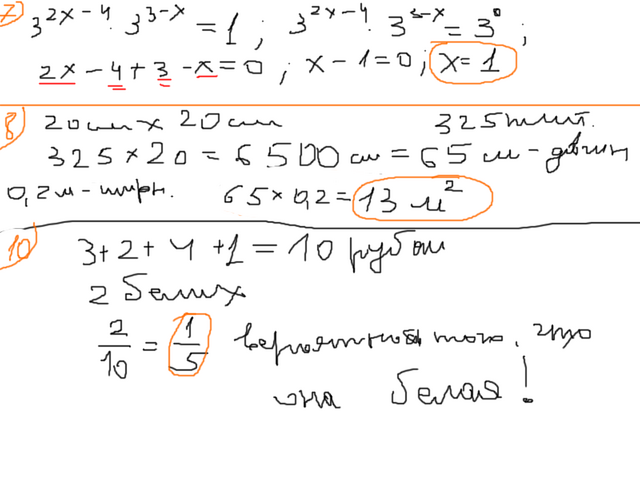 7) 3^{2x-4} · 3^{3-x} = 1 ; 3^{2x-4} · 3^{3-x} = 3^0 ;
2x - 4 + 3 - x = 0 ; x - 1 = 0 ; x = 1
8) 20см x 20см 325плит.
325 x 20 = 6500 см = 65 м - длин
0,2м - шир. 65 x 0,2 = 13 м²
10) 3 + 2 + 4 + 1 = 10 рубаш
2 белых
2/10 = 1/5 вероятность того, что
она белая!